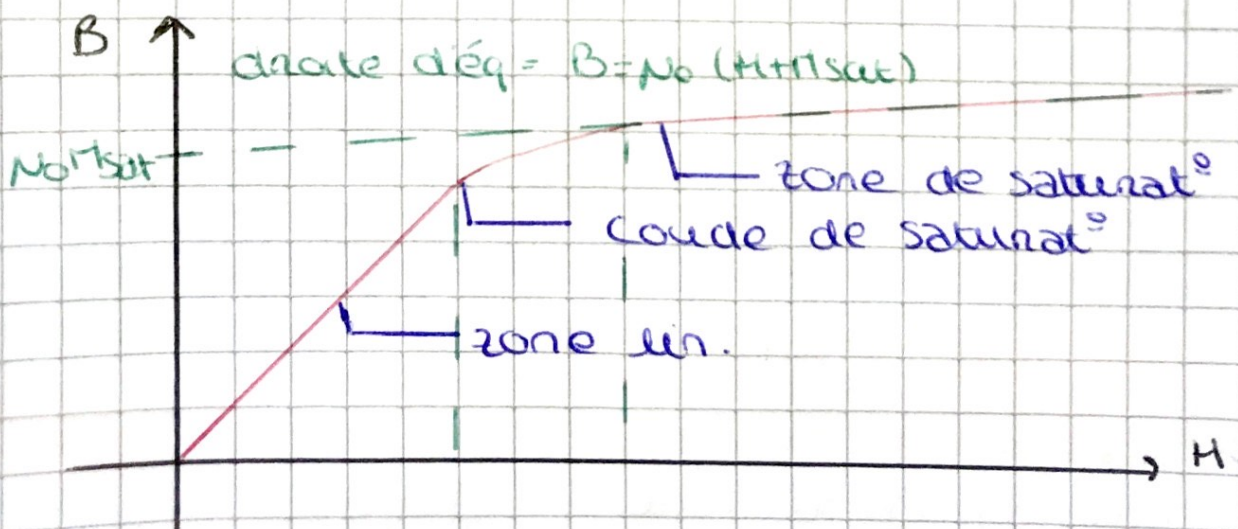 B
droite d'éq = B=μ₀ (H+Msat)
μ₀Msat
zone de saturat°
coude de saturat°
zone lin.
H